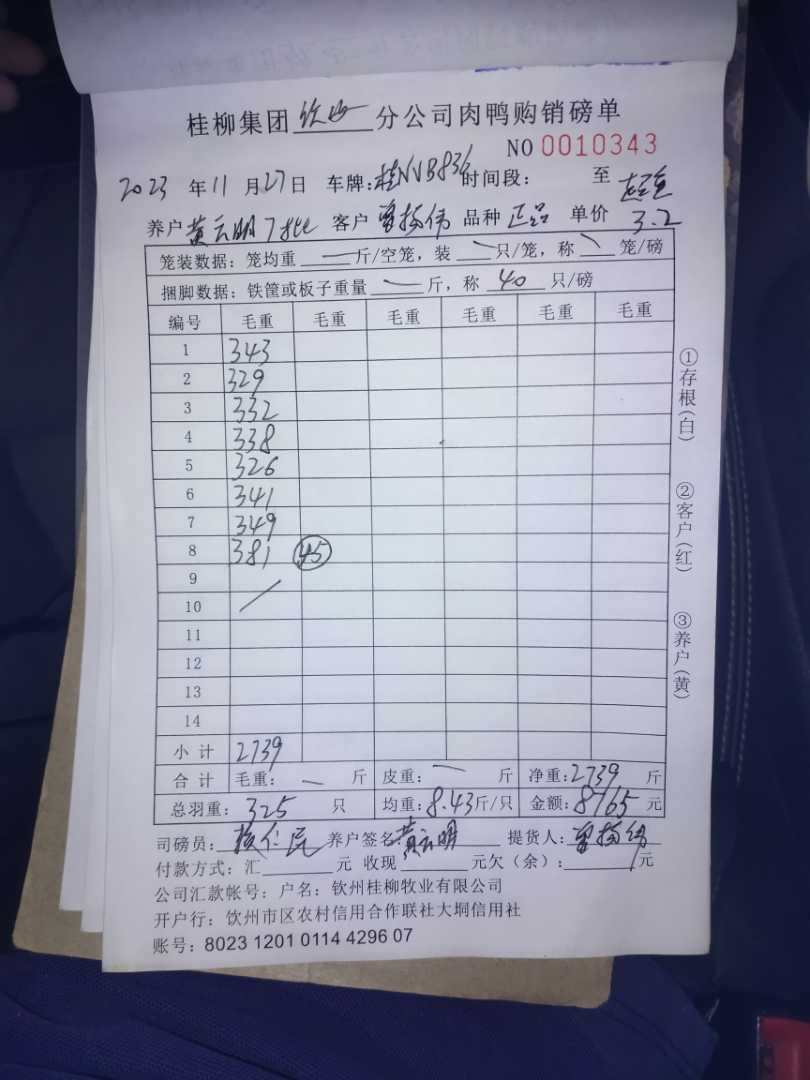 桂柳集团 钦州 分公司肉鸭购销磅单
NO 0010343
2023 年 11 月 27 日 车牌: 桂NVB836 时间段: 至
养户 黄云明 客户 品种 正品 单价 3.2
笼装数据: 笼均重 — 斤/空笼, 装 — 只/笼, 称 — 笼/磅
捆脚数据: 铁筐或板子重量 — 斤, 称 40 只/磅
编号 毛重 毛重 毛重 毛重 毛重 毛重
1 343
2 329
3 332
4 338
5 326
6 341
7 349
8 381 45
9
10 /
11
12
13
14
小计 2739
合计 毛重: — 斤 皮重: — 斤 净重: 2739 斤
总羽重: 325 只 均重: 8.43 斤/只 金额: 8765 元
司磅员: 养户签名: 黄云明 提货人:
付款方式: 汇 元 收现 元欠(余): 元
公司汇款帐号: 户名: 钦州桂柳牧业有限公司
开户行: 钦州市区农村信用合作联社大垌信用社
账号: 8023 1201 0114 4296 07
①存根(白)
②客户(红)
③养户(黄)